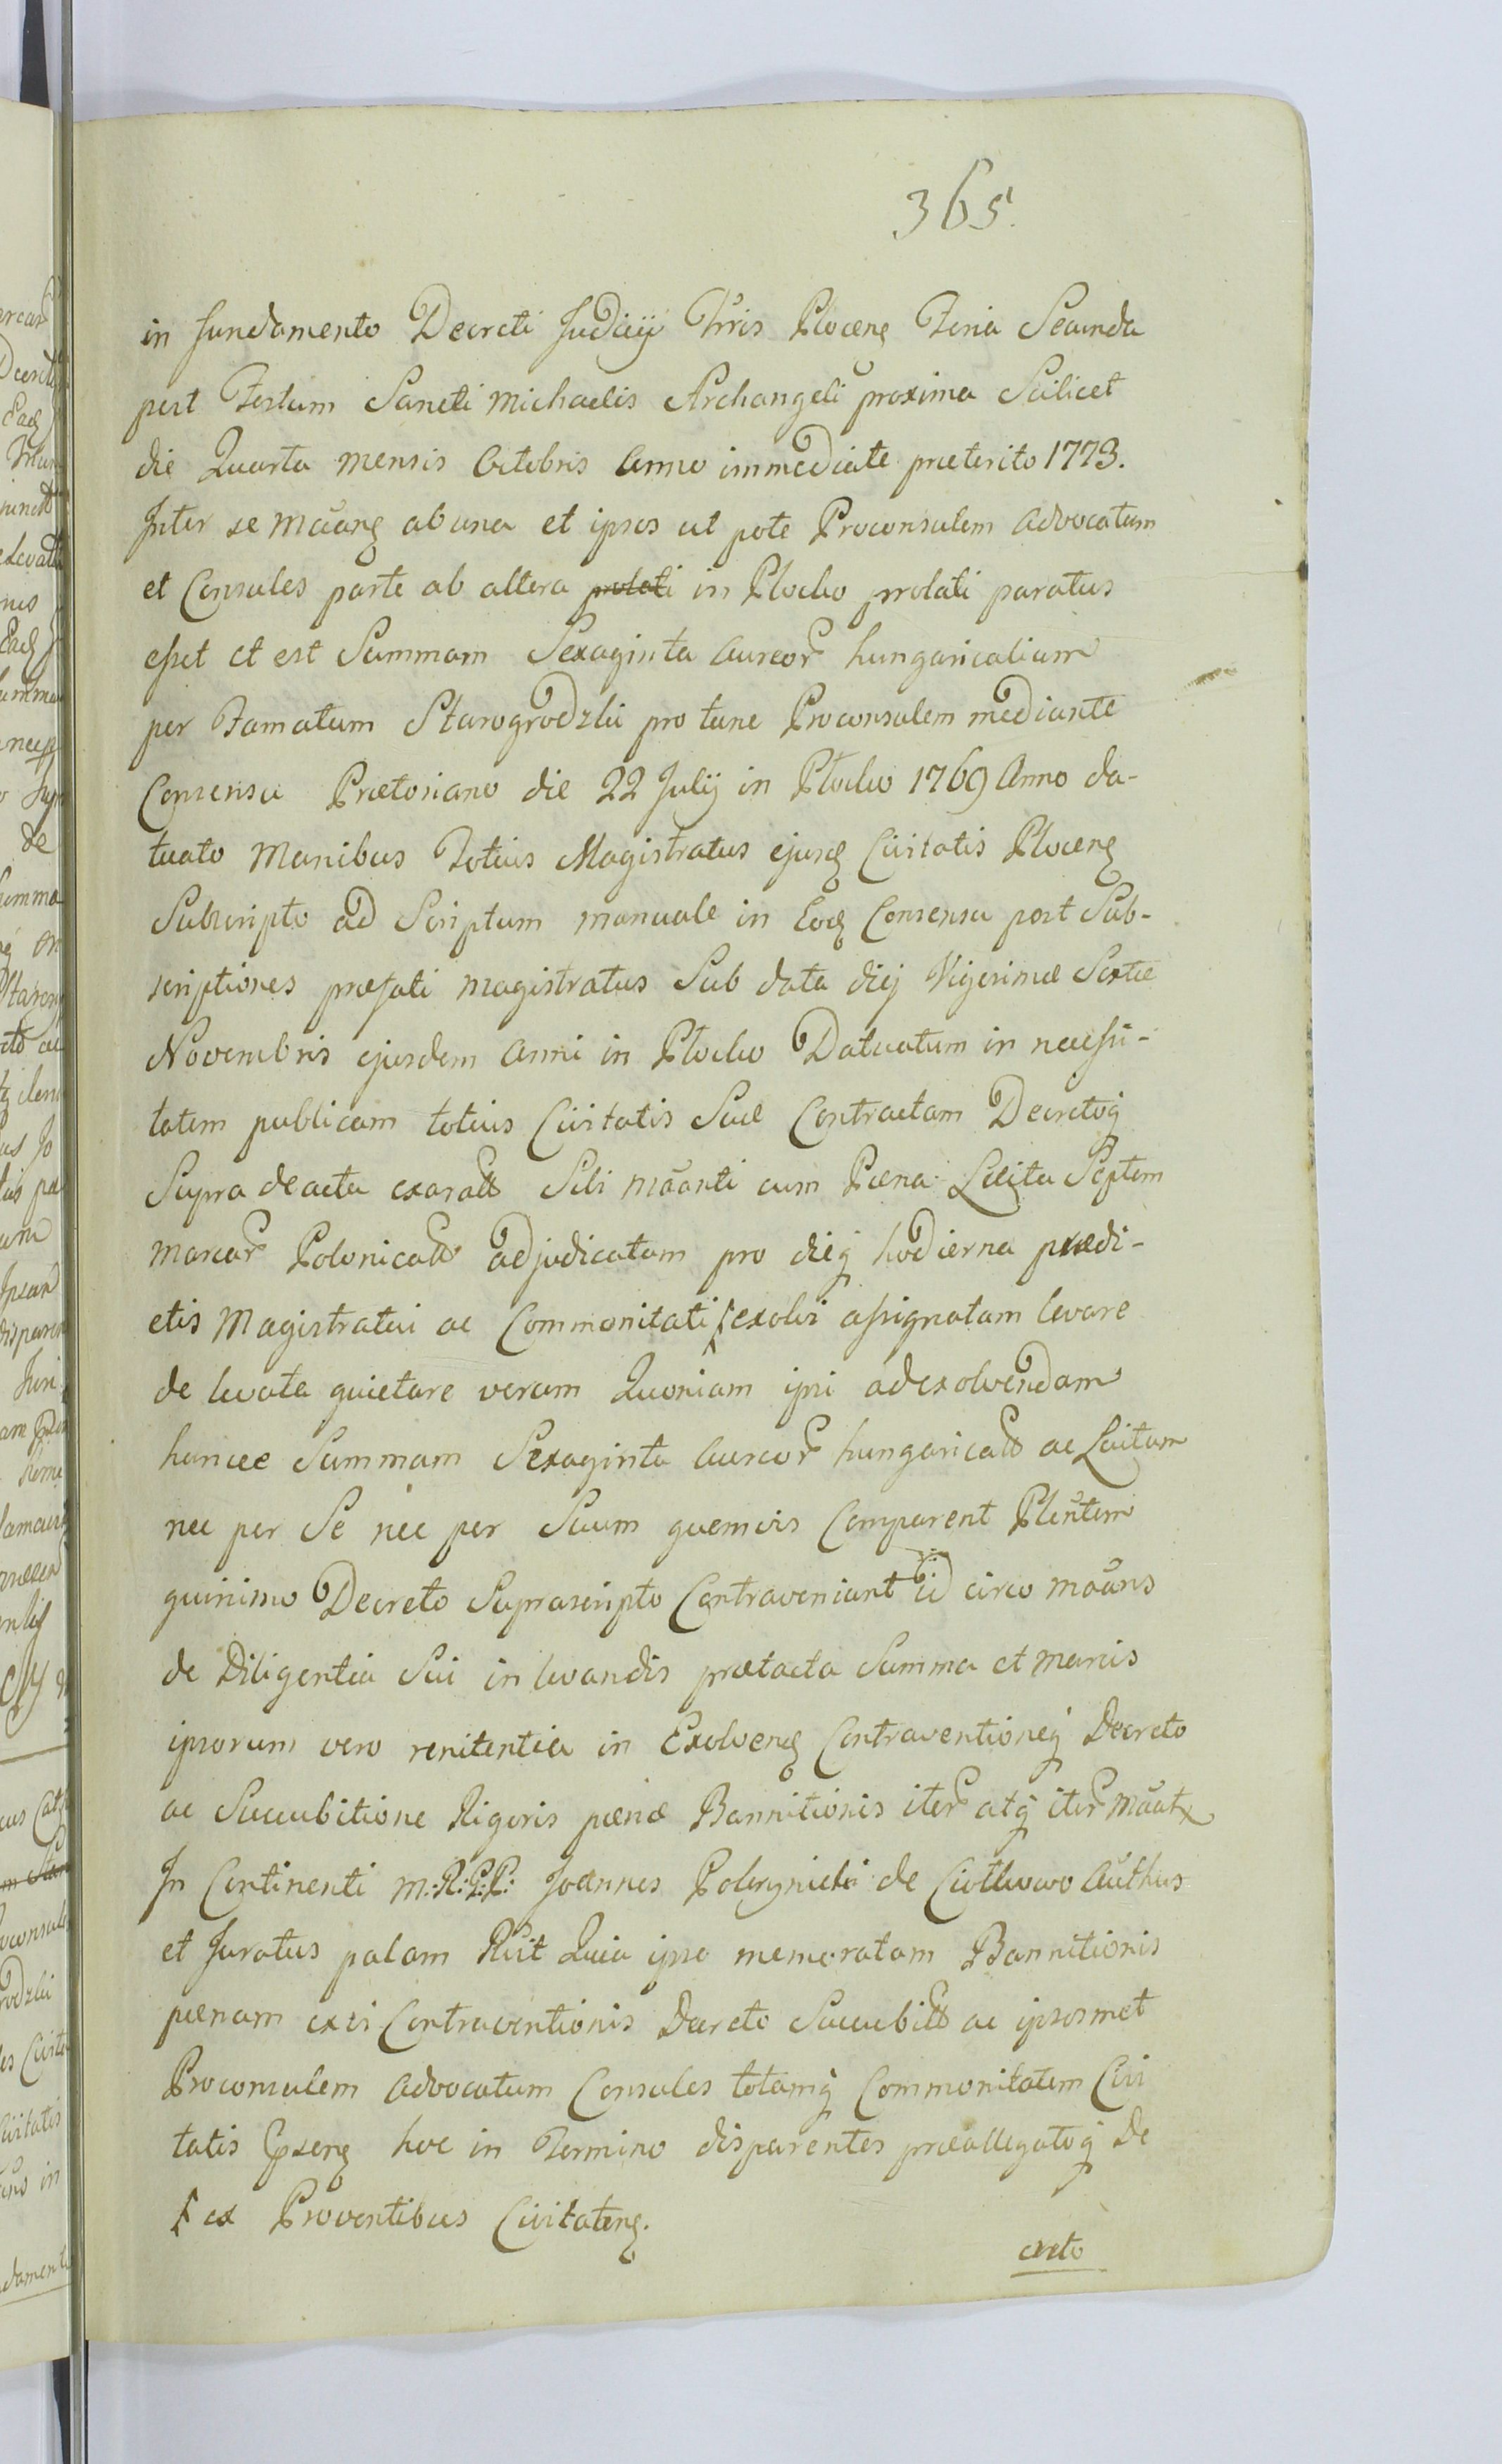 365.
in fundamento Decreti Judicij Trris Plocens Feria Secunda
post Festum Sancti Michaelis Archangeli proxima Scilicet
die Quarta Mensis Octobris Anno immediate præterito 1773.
Inter se Mãans ab una et ipsos ut pote Proconsulem Advocatum
et Consules parte ab altera prolati in Plocko prolati paratus
esset et est Summam Sexaginta Aureor hungaricalium
per Famatum Starogrodzki pro tunc Proconsulem mediante
Consensu Prætoriano die 22 Julij in Plocko 1769 Anno da-
tuato Manibus Totius Magistratus ejusd Civitatis Plocens
Subscripto ad Scriptum manuale in Eod Consensu post Sub-
scriptiones præfati Magistratus Sub data diej Vigesimæ Sextæ
Novembris ejusdem Anni in Plocko Datuatum in necessi-
tatem publicam totius Civitatis Suæ Contractam Decretoq
Supra de actu exarato Sibi mãanti cum Pæna Luita Septem
Marcar Polonical adjudicatam pro dieq hodierna prædi-
ctis Magistratui ac Commonitati exolvi assignatam levare
de levata quietare verum Quoniam ipsi ad exolvendam
huncce Summam Sexaginta Aureor hungarical ac Luitum
nec per Se nec per Suum quemvis Comparent Plentem
quinimo Decreto Suprascripto Contraveniunt id circo mãans
de Diligentia Sui in levandis prætacta Summa et Marcis
ipsorum vero renitentia in Exolvend Contraventioneq Decreto
ac Succubitione Rigoris pænæ Bannitionis iter atq iter Mãat
In Continenti M: R: G: P: Joannes Pokrzynicki de Ciotkowo Authus
et Juratus palam Rũit Quia ipse memoratam Bannitionis
pænam ex vi Contraventionis Decreto Succubit ac ipsosmet
Proconsulem Advocatum Consules totamq Commonitatem Civi
tatis Ploцens hoc in Termino disparentes præallegatoq De
ex Proventibus Civitatens.
creto